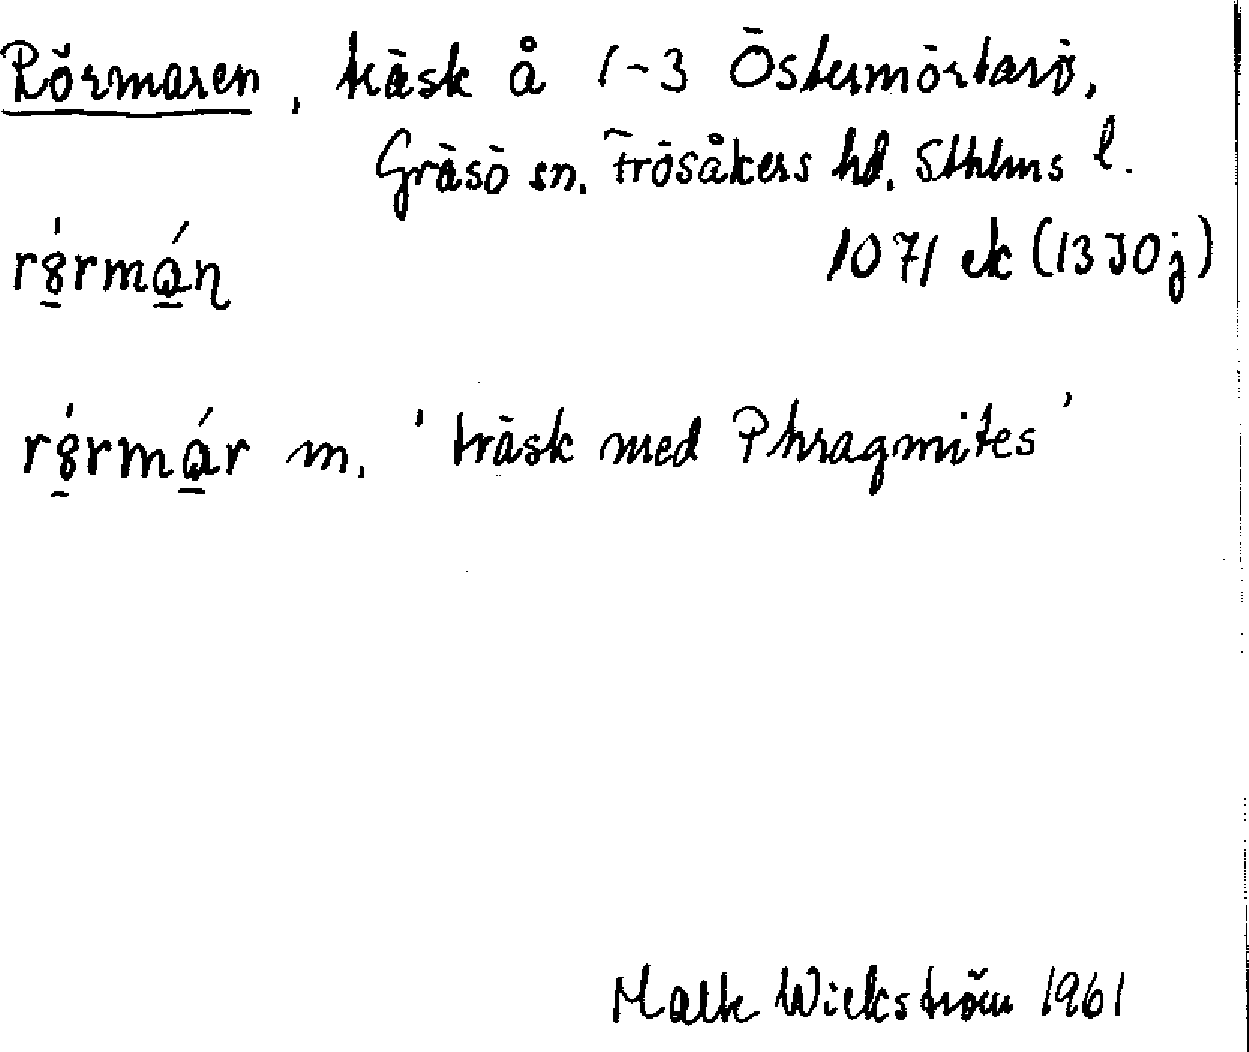 Rörmaren, träsk å 1-3 Östermörtarö,
Gräsö sn. Frösåkers hd. Sthlms l.
rȣ́rmán 1071 ek (13J0j)
rȣ́rmár m. 'träsk med Phragmites'
Wickström 1961